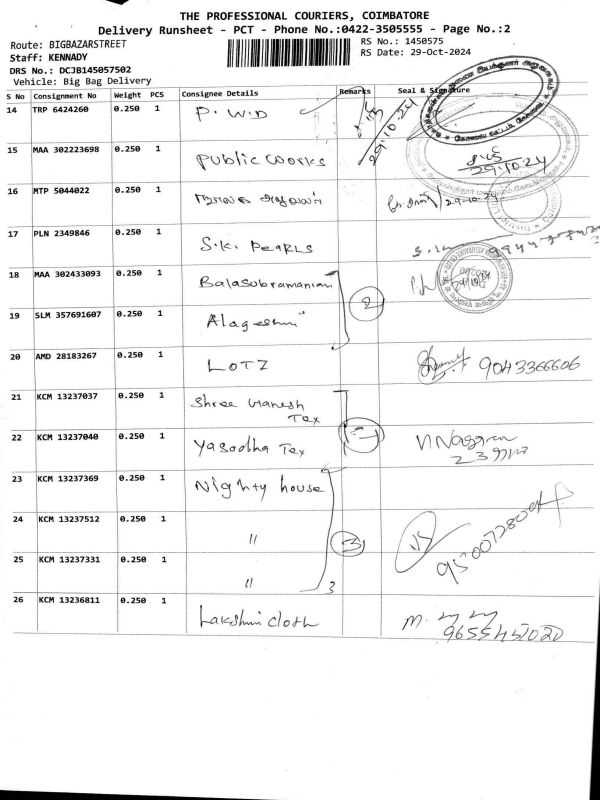 THE PROFESSIONAL COURIERS, COIMBATORE
Delivery Runsheet - PCT - Phone No.:0422-3505555 - Page No.:2
Route: BIGBAZARSTREET
RS No.: 1450575
Staff: KENNADY
RS Date: 29-Oct-2024
DRS No.: DCJB145057502
Vehicle: Big Bag Delivery
S No Consignment No Weight PCS Consignee Details Remarks Seal & Signature
14 TRP 6424260 0.250 1 P.W.D 29.10.24
15 MAA 302223698 0.250 1 Public Works 29.10.24
16 MTP 5044022 0.250 1 29-10-24
17 PLN 2349846 0.250 1 S.K. Pearls
18 MAA 302433093 0.250 1 Balasubramanian 2
19 SLM 357691607 0.250 1
20 AMD 28183267 0.250 1 LOTZ 9043366606
21 KCM 13237037 0.250 1 Shree Ganesh
Tex
22 KCM 13237040 0.250 1 Yasodha Tex
23 KCM 13237369 0.250 1 Nighty house
24 KCM 13237512 0.250 1 " 3
25 KCM 13237331 0.250 1 " 3
26 KCM 13236811 0.250 1 Lakshmi cloth